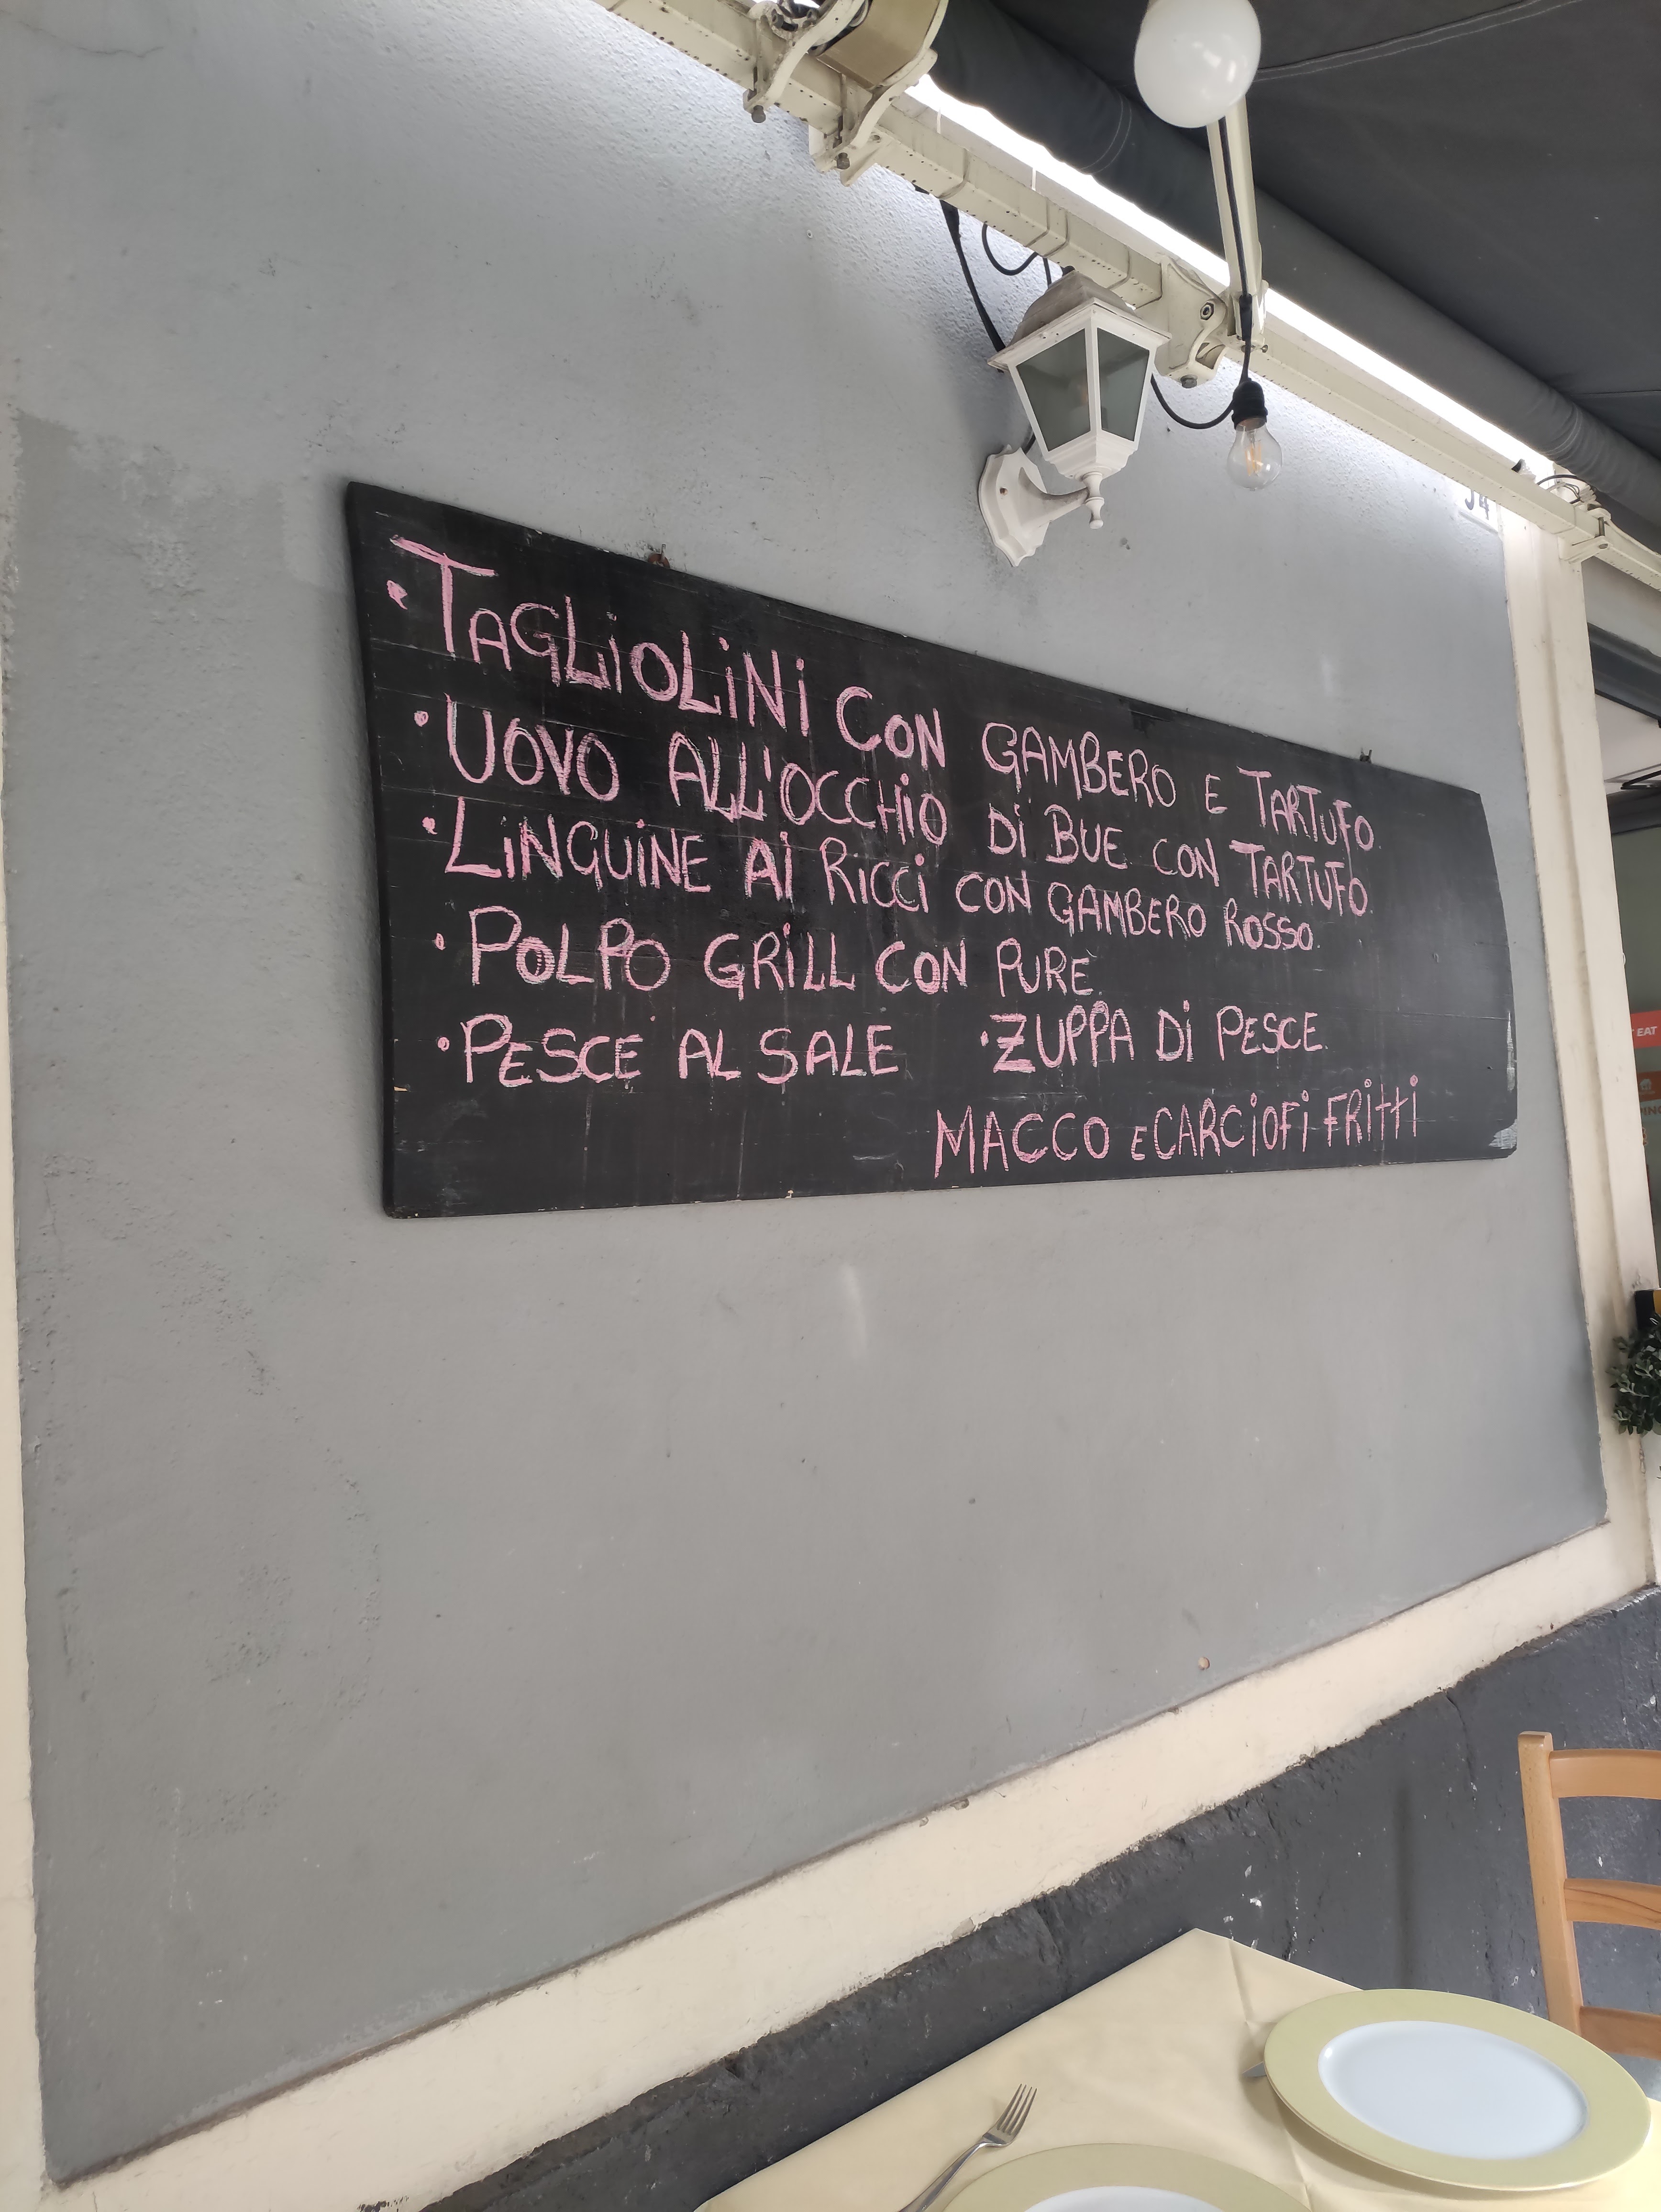 • TAGLIOLINI CON GAMBERO E TARTUFO.
• UOVO ALL'OCCHIO DI BUE CON TARTUFO.
• LINGUINE AI RICCI CON GAMBERO ROSSO.
• POLPO GRILL CON PURÈ.
• PESCE AL SALE • ZUPPA DI PESCE.
MACCO E CARCIOFI FRITTI
EAT